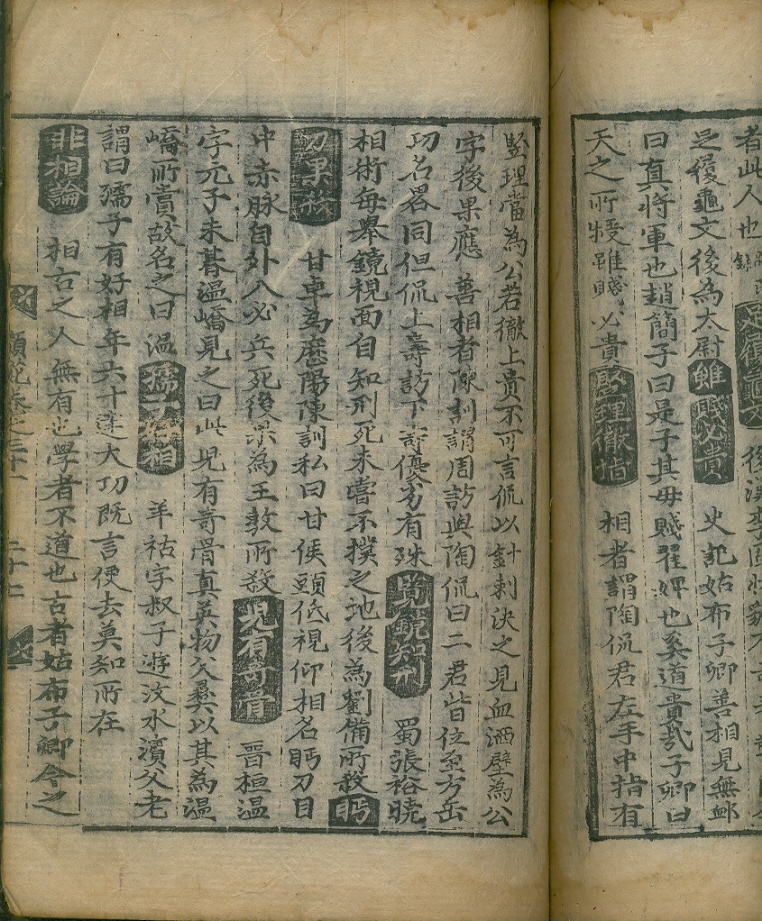 者此人也
是優龜文後為太尉雖賤必貴 史記姑布子卿善相見無卹
曰真將軍也趙簡子曰是子其毋賤翟婢也奚道貴㢤子卿曰
天之所授雖賤必貴豎理徹指 相者謂陶侃君左手中指有
豎理當為公若徹上貴不可言侃以針刺決之見血洒壁為公
字後果應 善相者陳訓謂周訪與陶侃曰二君皆位至方岳
功名畧同但侃上壽訪下壽優劣有殊覧鏡知刑 蜀張裕曉
相術每舉鏡視面自知刑死未嘗不撲之地後為劉備所殺眄
刀果杀 甘卓為歷陽陳訓私曰甘侯頭低視仰相名眄刀目
中赤脉自外入必兵死後果為王敦所殺児有竒骨 晉桓温
字元子未朞温嶠見之曰此児有竒骨真英物父彝以其為温
嶠所賞故名之曰温孺子好相 羊祜字叔子遊汶水濱父老
謂曰孺子有好相年六十建大功既言便去莫知所在
非相論 相古之人無有也學者不道也古者姑布子卿今之